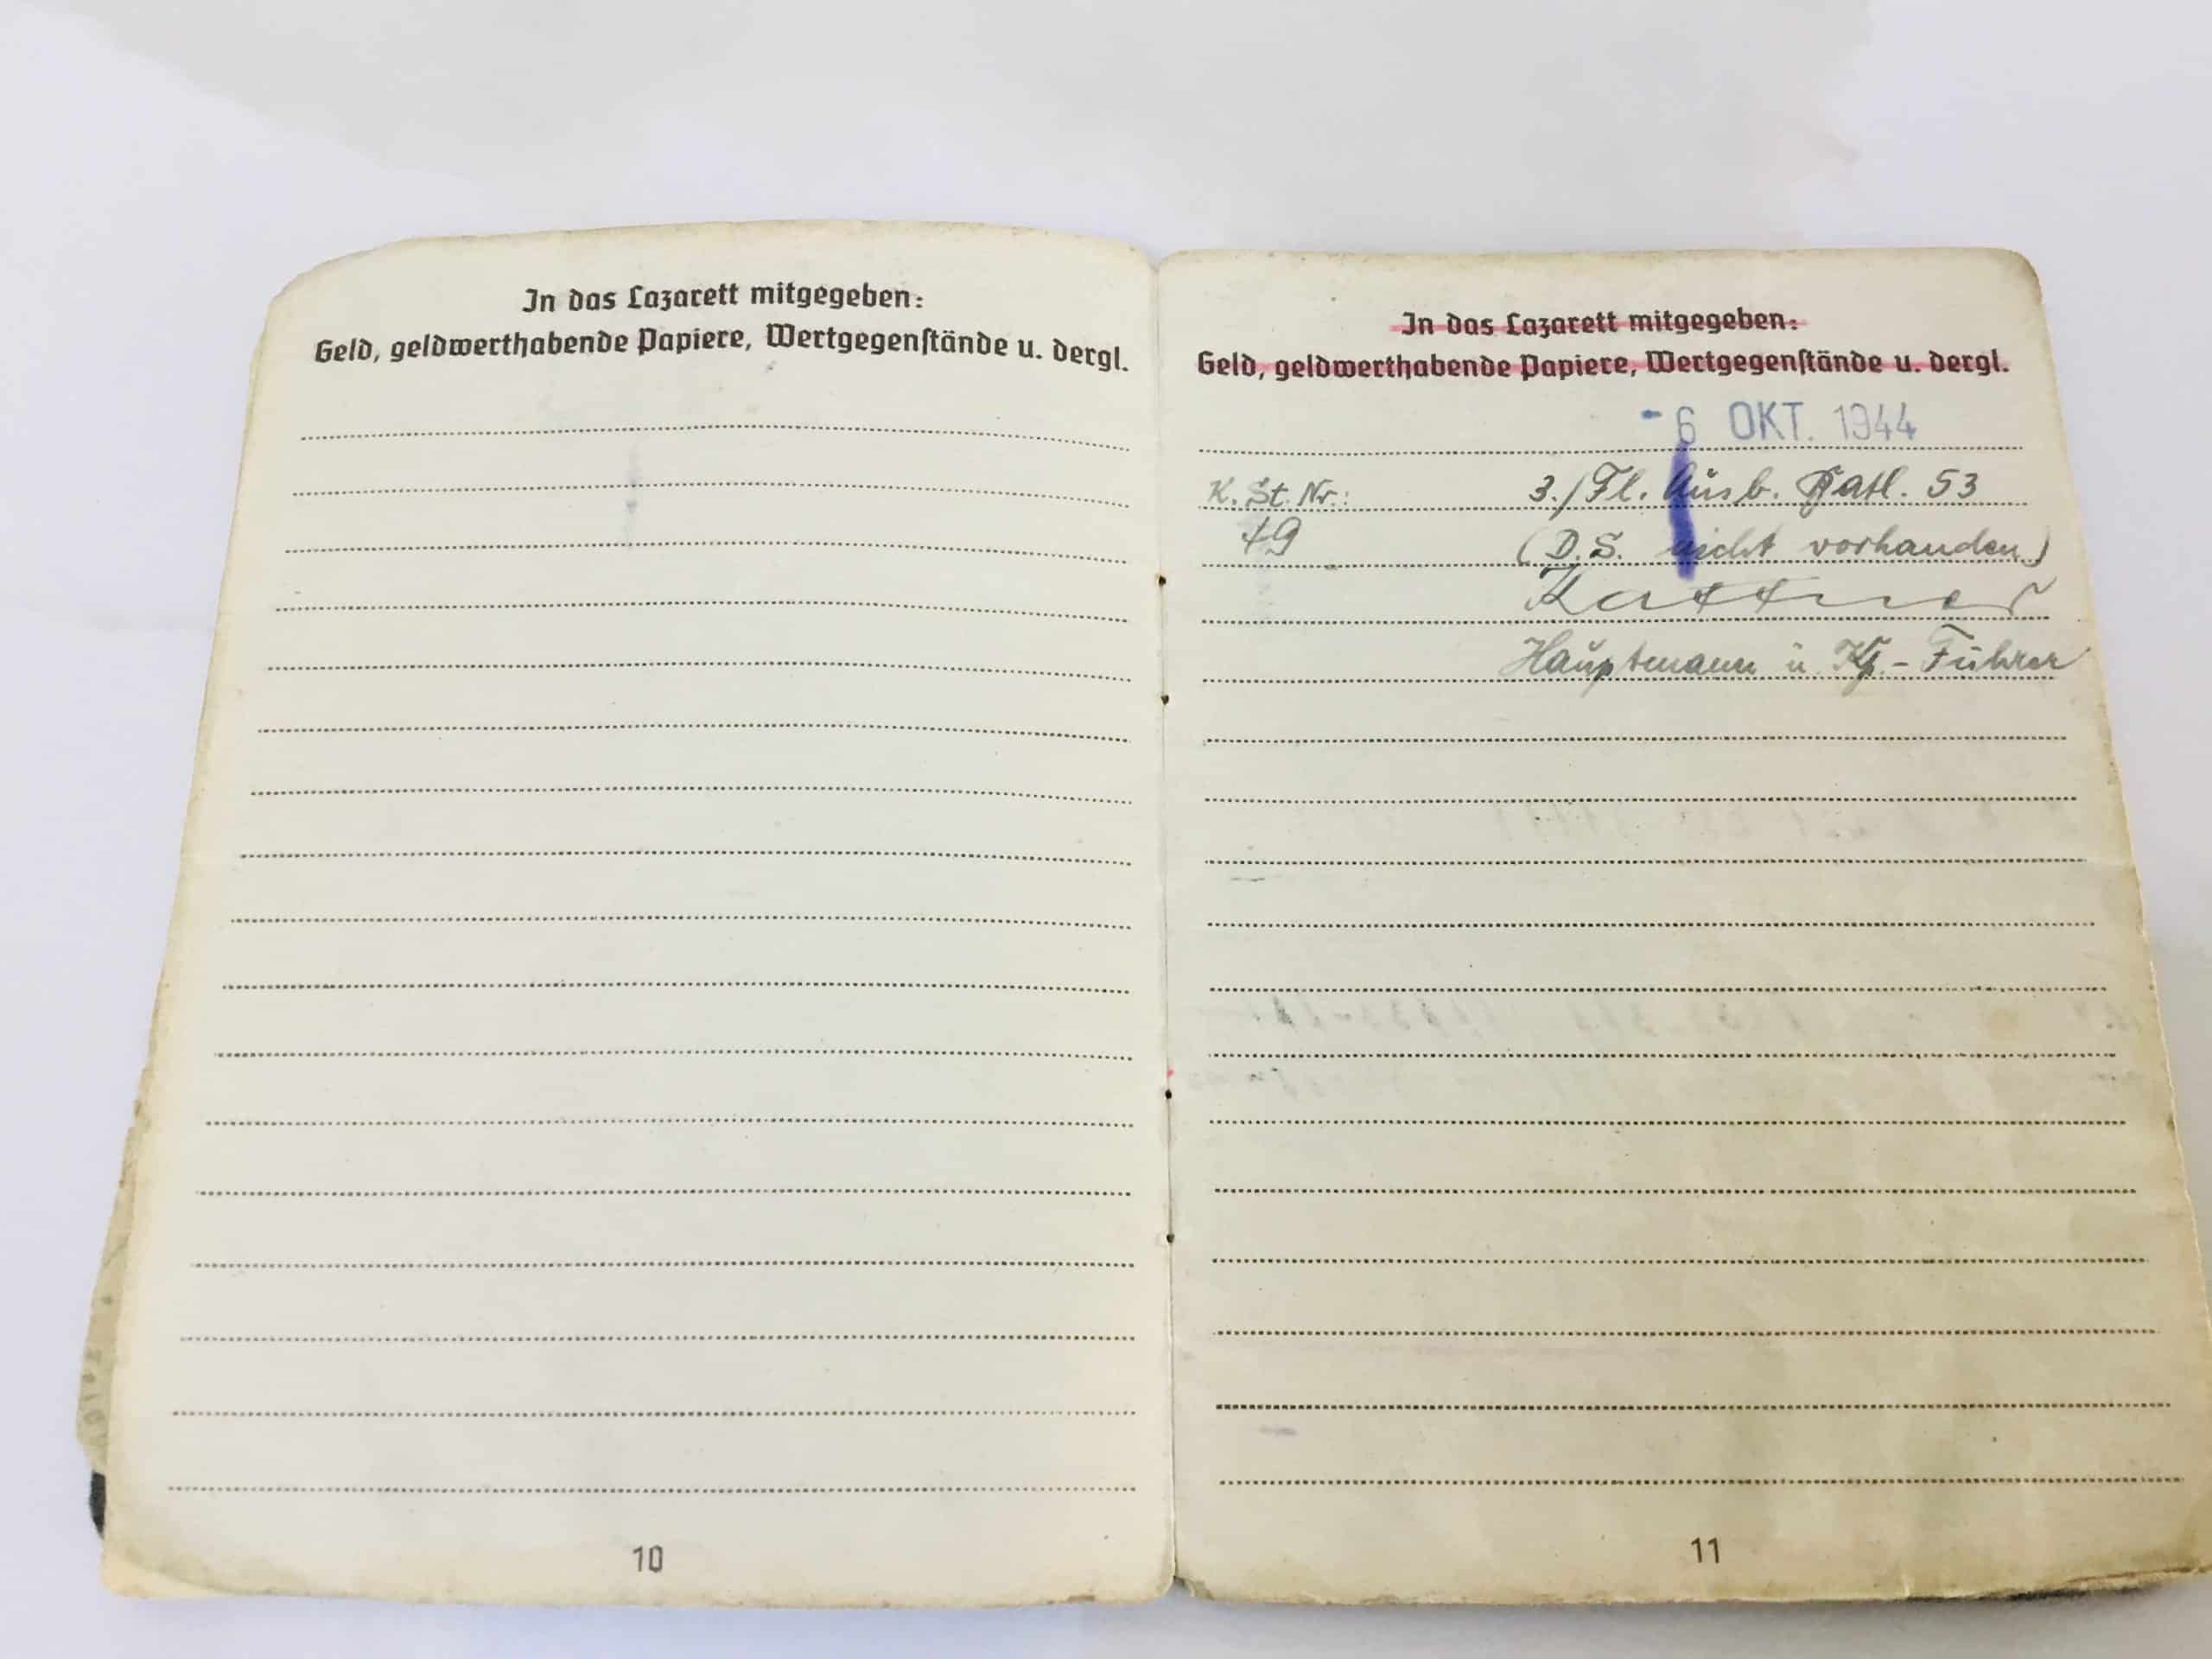 In das Lazarett mitgegeben:
Geld, geldwerthabende Papiere, Wertgegenstände u. dergl.
10
In das Lazarett mitgegeben:
Geld, geldwerthabende Papiere, Wertgegenstände u. dergl.
- 6 OKT. 1944
K. St. Nr.: 3./Fl. Ausb. Batl. 53
49 (D.S. nicht vorhanden)
Kattner
Hauptmann u. Kp.-Führer
11